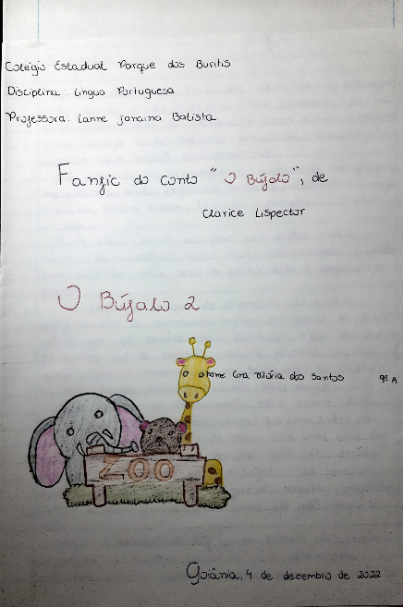 Colégio Estadual Parque dos Buritis
Disciplina: Língua Portuguesa
Professora: Lanne Janaina Batista
Fanfic do conto "O Búfalo", de
Clarice Lispector
O Búfalo 2
dos Santos 9º A
ZOO
Goiânia, 4 de dezembro de 2022